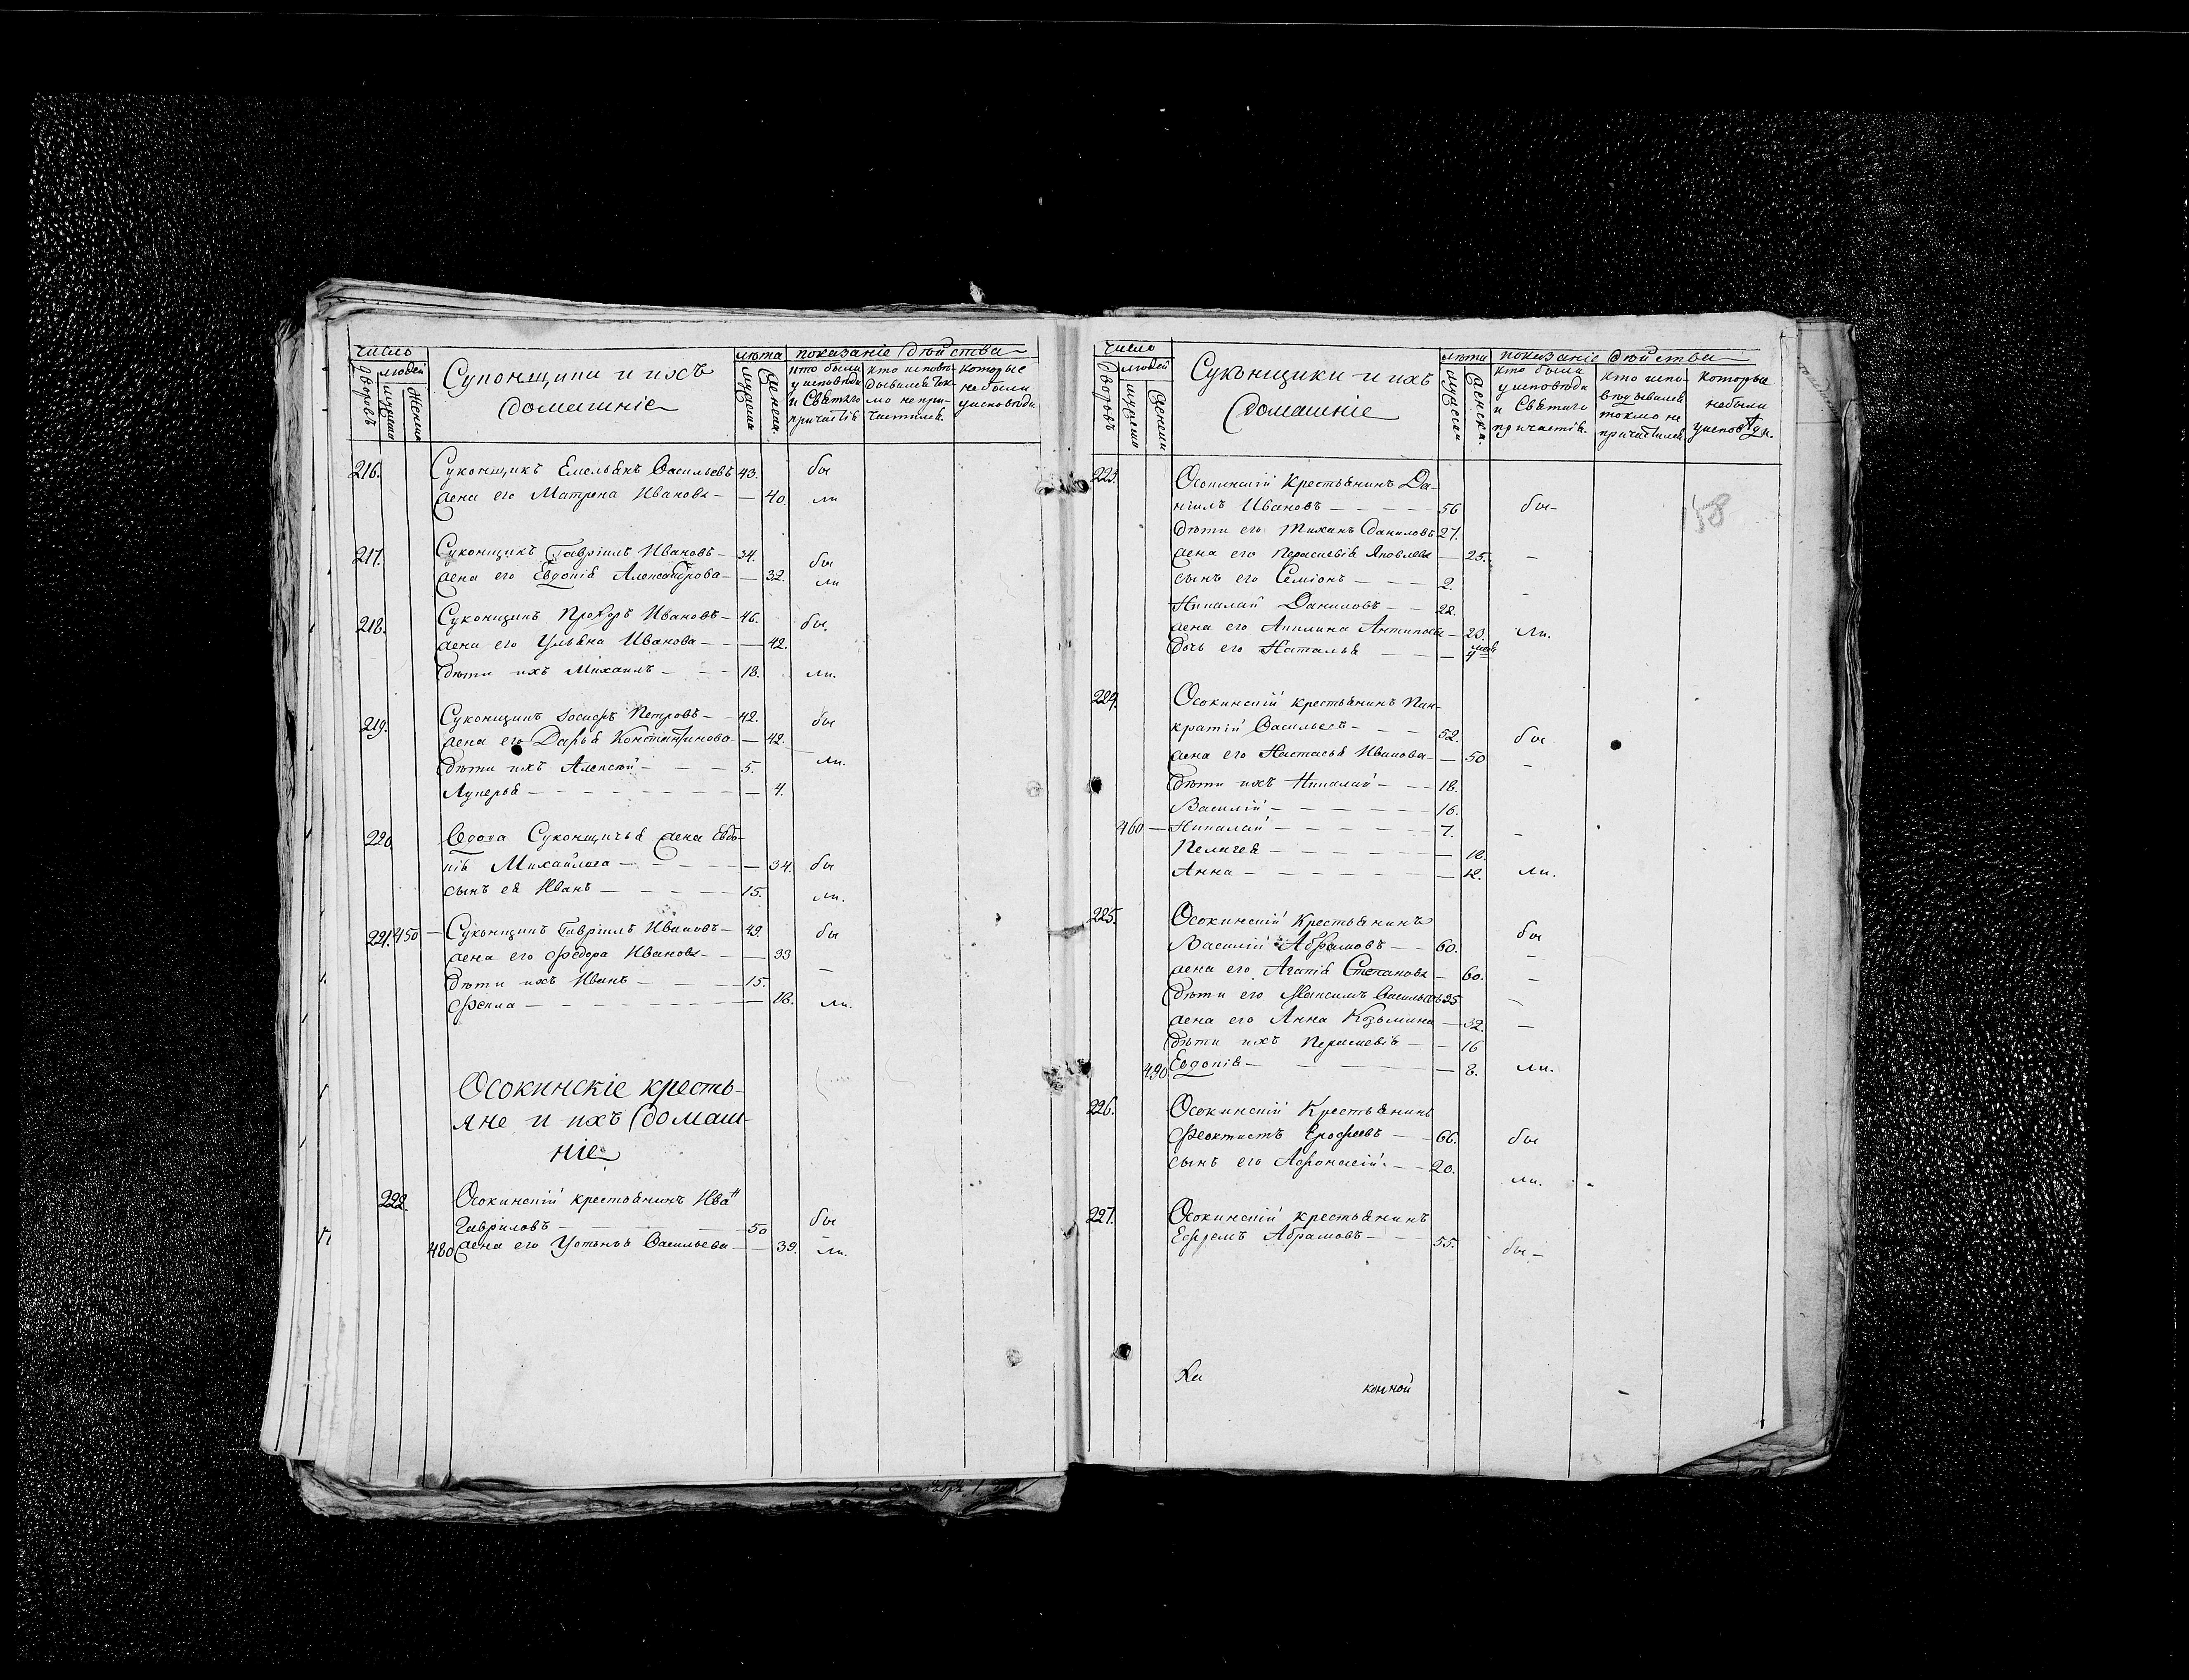 число
людей
дворовъ
мужеска
женска
Суконщики и ихъ
домашніе
лѣта
мужеска
женска.
показаніе действа
кто были
у исповѣди
и Святаго
причастія
кто исповѣ-
дывался ток-
мо не при-
частился.
которые
не были
у исповѣди
216. Суконщикъ Емельянъ Васильевъ 43. бы
жена его Матрена Иванова — — 40. ли
217. Суконщикъ Гавріилъ Ивановъ — 34. бы
жена его Евдокія Александрова — — 32. ли
218. Суконщикъ Прохоръ Ивановъ — 46. бы
жена его Ульяна Иванова — — — 42.
дѣти ихъ Михаилъ — — — 18. ли.
219. Суконщикъ Іосифъ Петровъ — 42. бы
жена его Дарья Константинова — — 42.
дѣти ихъ Алексѣй — — — 5. ли.
Лукерья — — — — — — — 4.
220 Вдова Суконщичья жена Евдо-
кія Михайлова — — — — 34. бы
сынъ ея Иванъ — — — — 15. ли.
221. 450 — Суконщикъ Гавріилъ Ивановъ — 49. бы
жена его Федора Иванова — — 33 —
дѣти ихъ Иванъ — — — 15.
Фекла — — — — — — — 18. ли.
Осокинскіе кресть-
яне и ихъ домаш-
ніе
222. Осокинскій крестьянинъ Иван
Гавриловъ — — — — 50 бы
480 жена его Устинья Васильева — — 39. ли.
число
людей
дворовъ
мужеска
женска
Суконщики и ихъ
домашніе
лѣта
мужеска
женска.
показаніе действа
кто были
у исповѣди
и Святаго
причастія.
кто испо-
вѣдывался
токмо не
причастился
которые
небыли
у исповѣди.
58
223. Осокинскій крестьянинъ Да-
ніилъ Ивановъ — — — — 56 бы —
дѣти его Тихинъ Даниловъ 27.
жена его Параскевія Яковлева — 25. —
сынъ его Семіонъ — — — 2. —
Николай Даниловъ — — 22.
жена его Акилина Антипова — 23. ли.
дочь его Наталья — — — 4 мѣс
224. Осокинскій крестьянинъ Пан-
кратій Васильевъ — — — 52. бы
жена его Настасья Иванова — — 50 —
дѣти ихъ Николай — — 18.
Василій — — — — — 16.
460 — Николай — — — — — 7. —
Пелагея — — — — — — 18.
Анна — — — — — — — 12. ли.
225. Осокинскій крестьянинъ бы
Василій Абрамовъ — — 60. —
жена его Агапія Степанова — 60. —
дѣти его Максимъ Васильевъ 35 —
жена его Анна Козьмина — 32. —
дѣти ихъ Параскевія — — 16
490 Евдокія — — — — — 8. ли.
226. Осокинскій крестьянинъ
Феоктистъ Ерофеевъ — — 66. бы
сынъ его Афонасій — — 20. ли.
227. Осокинскій крестьянинъ
Ефремъ Абрамовъ — — 55. бы —
конной